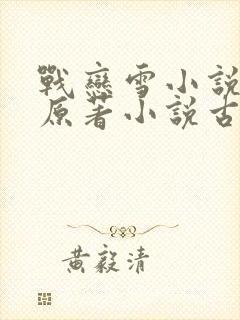 戰戀雪小說
原著小說古
黃毅清